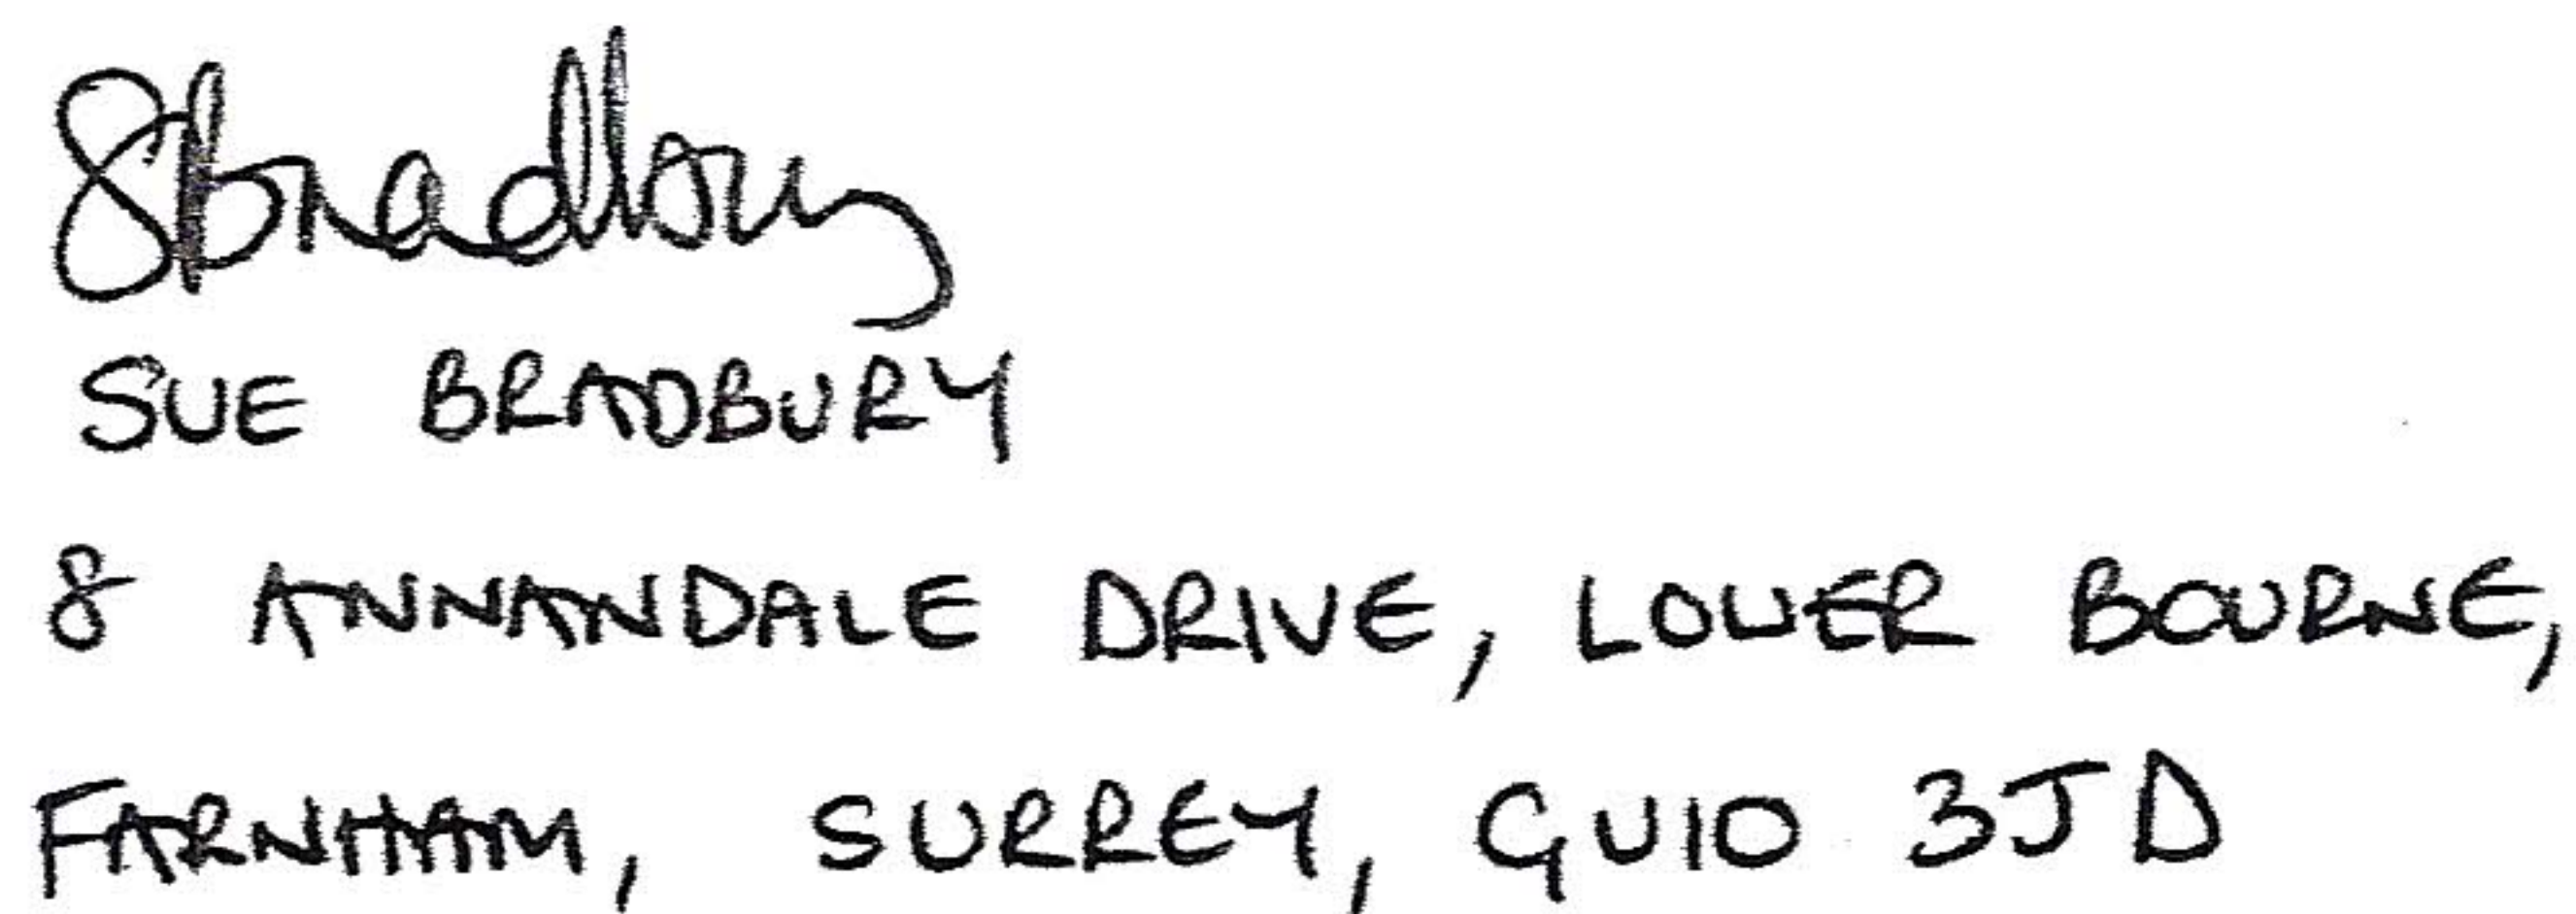 SBradbury
SUE BRADBURY
8 ANNANDALE DRIVE, LOWER BOURNE,
FARNHAM, SURREY, GU10 3JD